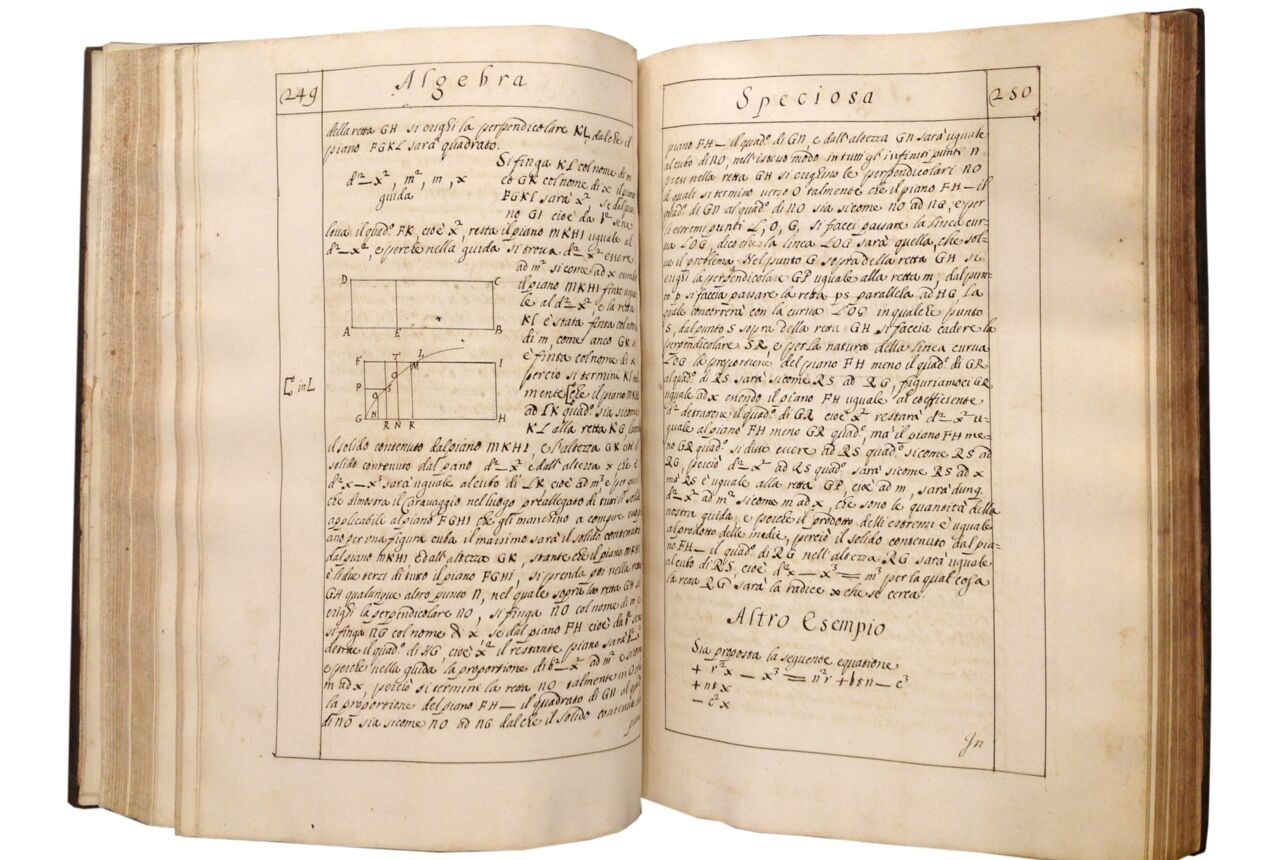 249
Algebra
della retta GH si erighi la perpendicolare KL, dal che il
piano FGKL sarà quadrato.
Si finga KL col nome di m
d²—x², m², m, x
guida
et GK col nome di x il piano
FGKL sarà x², se dal pia
no GI cioè da d² se ne
leua il quad.º FK, cioè x², resta il piano MKHI uguale al
d²—x², e perche nella guida si troua d²—x² essere
ad m² si come ad x
il piano MKHI finto ugua
le al d²—x², e la retta
KL è stata finta col nome
di m, come anco GK si
è finta col nome di x
percio si termini KL tal
mente che il piano MKHI
ad LK quad.º sia si come
KL alla retta KG,
D C
A E B
F T L I
O M
P S
Q
G N R N K H
C in L
il solido contenuto dal piano MKHI, e l'altezza GK cioè il
solido contenuto dal pano d²—x² e dall'altezza x che è
d²x—x³ sarà uguale al cubo di LK cioè ad m³ e per quel
che dimostra il Carauaggio nel luogo preallegato di tutti li solidi
applicabile al piano FGHI che gli manchino a compire
ano per una figura cuba il massimo sarà il solido contenuto
dal piano MKHI e dall'altezza GK, stante che il piano MKHI
è li due terzi di tutto il piano FGHI, si prenda poi nella retta
GH qualunque altro punto N, nel quale sopra la retta GH si
erighi la perpendicolare NO, si finga NO col nome di m, e
si finga NG col nome di x se dal piano FH cioè da d² se ne
detrae il quad.º di NG, cioè x² il restante piano sarà d²—x²
e perche nella guida la proportione di d²—x² ad m² è si come
m ad x, perciò si termini la retta NO talmente in O che
la proportione del piano FH— il quadrato di GN al quad.º
di NO sia si come NO ad NG dal che il solido contenuto dal
piano
Speciosa
250
piano FH— il quad.º di GN, e dall'altezza GN sarà uguale
al cubo di NO, nell'istesso modo in tutti gl'infiniti punti N
presi nella retta GH si erighino le perpendicolari NO
le quali si termino uerso O talmente che il piano FH— il
quad.º di GN al quad.º di NO sia si come NO ad NG, e per
li estremi punti L, O, G, si facci passare la linea cur=
ua LOG, dico che la linea LOG sarà quella, che sol=
ue il problema. Nel punto G sopra della retta GH si
erighi la perpendicolare GP uguale alla retta m, dal pun=
to P si faccia passare la retta PS parallela ad HG, La
quale concorrerà con la curua LOG in qualche punto
S, dal punto S sopra della retta GH si faccia cadere la
perpendicolare SR, e per la natura della linea curua
LOG la proportione del piano FH meno il quad.º di GR
al quad.º di RS sarà si come RS ad RG, figuriamoci GR
uguale ad x essendo il piano FH uguale al coefficiente
d² detrattone il quad.º di GR cioè x² restarà d²—x² u=
guale al piano FH meno GR quad.º, mà il piano FH me=
no GR quad.º si disse essere ad RS quad.º si come RS ad
RG, perciò d²—x² ad RS quad.º sarà si come RS ad x
mà RS è uguale alla retta GP, cioè ad m, sarà dunq
d²—x² ad m² si come m ad x, che sono le quantità della
nostra guida, e perche il prodotto delli estremi è uguale
al prodotto delle medie, perciò il solido contenuto dal pia=
no FH— il quad.º di RG nell'altezza RG sarà uguale
al cubo di RS, cioè d²x—x³=m³ per la qual cosa
la retta RG sarà la radice x che si cerca.
Altro Esempio
Sia proposta la seguente equatione
+ r²x — x³ = n²r + brn — c³
+ nrx
— c²x
In